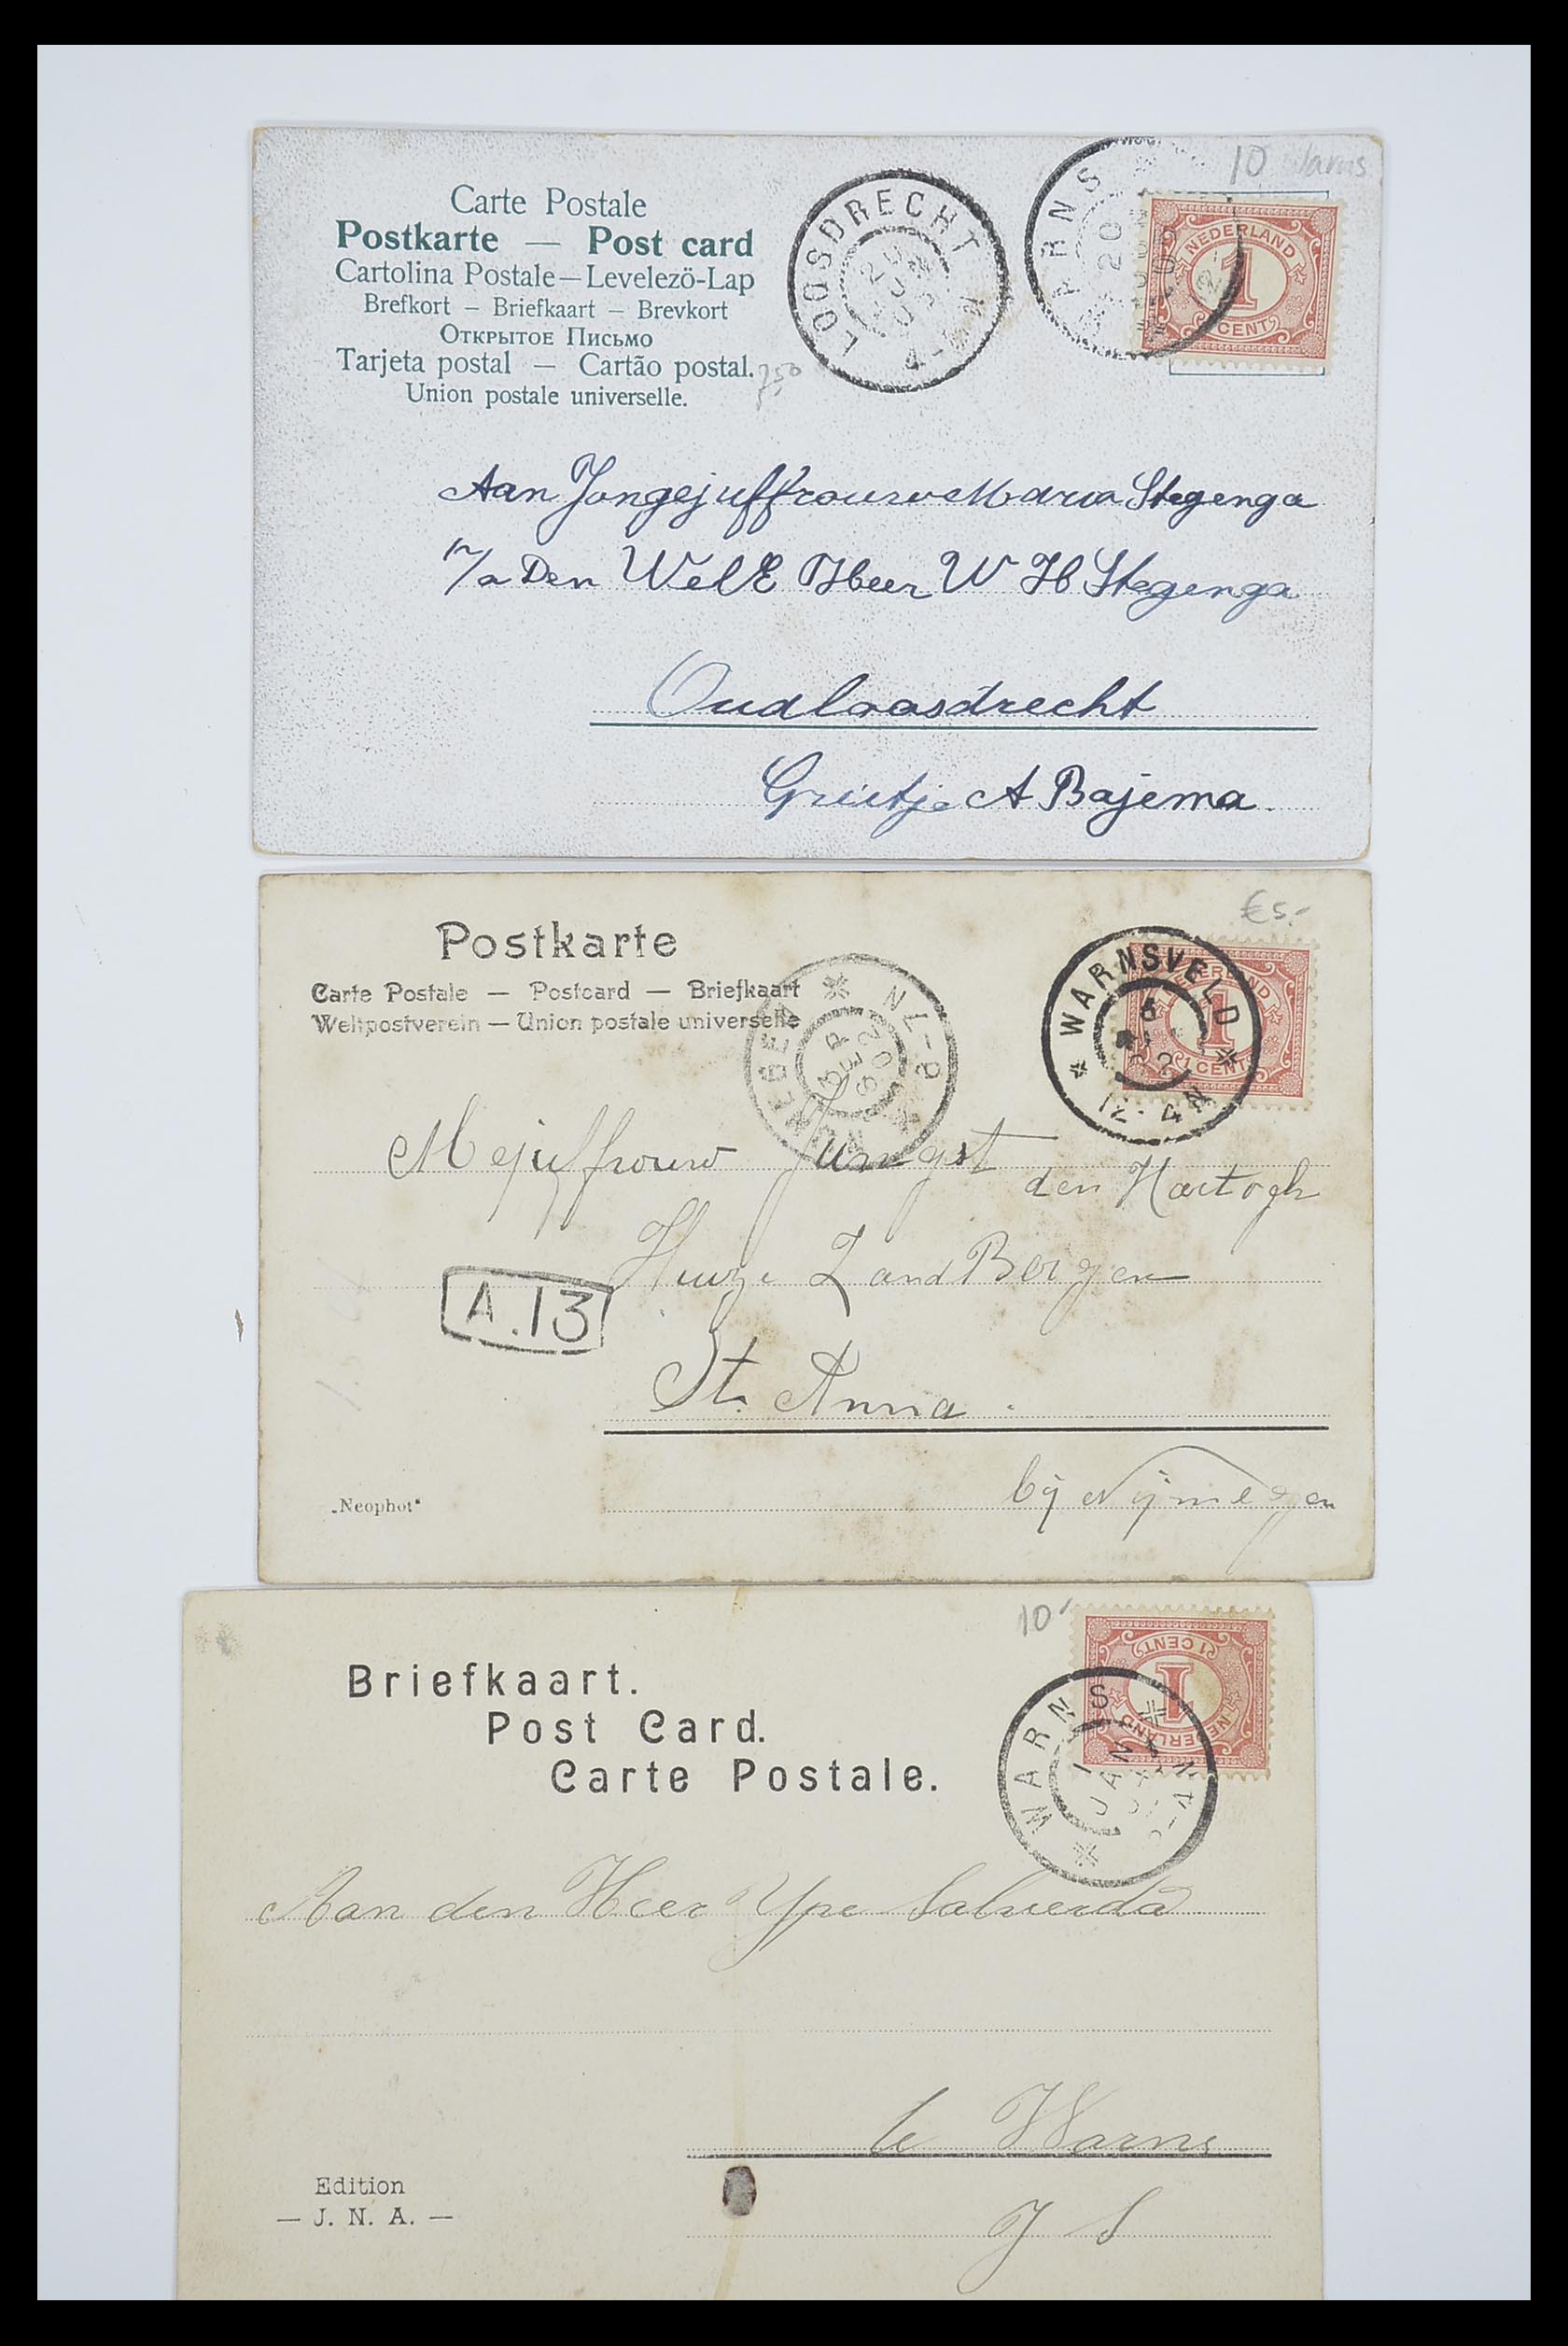 10 Warns
Carte Postale
Postkarte — Post card
Cartolina Postale — Levelezö-Lap
Brefkort – Briefkaart – Brevkort
Открытое Письмо
Tarjeta postal — Cartão postal.
Union postale universelle.
750
LOOSDRECHT
WARNS
20
NEDERLAND
1
CENT
Aan Jongejuffrouw Maria Stegenga
p/a Den WelE Heer W H Stegenga
Oudloosdrecht
Grietje A Bajema.
€5.-
Postkarte
Carte Postale — Postcard — Briefkaart
Weltpostverein — Union postale universelle
SEP
02
WARNSVELD
12-4N
1
1 CENT
Mejuffrouw Jungst
den Hartogh
Huize Zand Bergen
A.13
St. Anna.
bij Nijmegen
„Neophot“
10-
Briefkaart.
Post Card.
Carte Postale.
1 CENT
1
NEDERLAND
WARNS
1
JAN
Aan den Heer Ype Salverda
te Warns
J S
Edition
— J. N. A. —